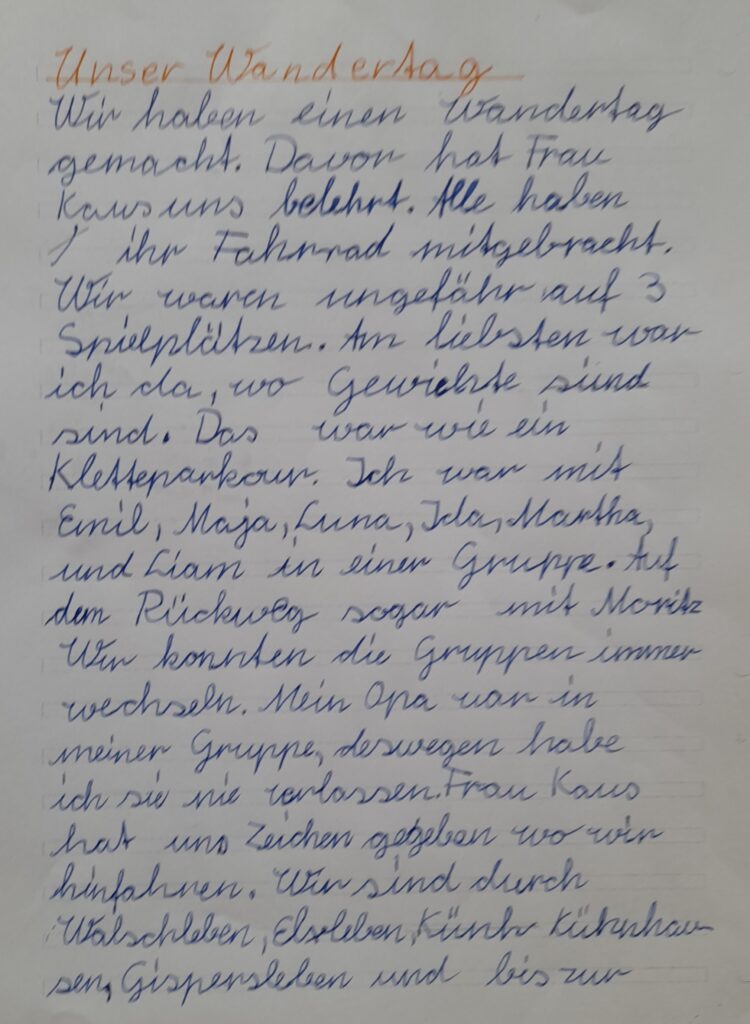 Unser Wandertag
Wir haben einen Wandertag
gemacht. Davor hat Frau
Kaus uns belehrt. Alle haben
ihr Fahrrad mitgebracht.
Wir waren ungefähr auf 3
Spielplätzen. Am liebsten war
ich da, wo Gewichte sind
sind. Das war wie ein
Kletteparkour. Ich war mit
Emil, Maja, Luna, Ida, Martha,
und Liam in einer Gruppe. Auf
dem Rückweg sogar mit Moritz
Wir konnten die Gruppen immer
wechseln. Mein Opa war in
meiner Gruppe, deswegen habe
ich sie nie verlassen. Frau Kaus
hat uns Zeichen gegeben wo wir
hinfahren. Wir sind durch
Walschleben, Elxleben, Kühnhau-
sen, Gispersleben und bis zur